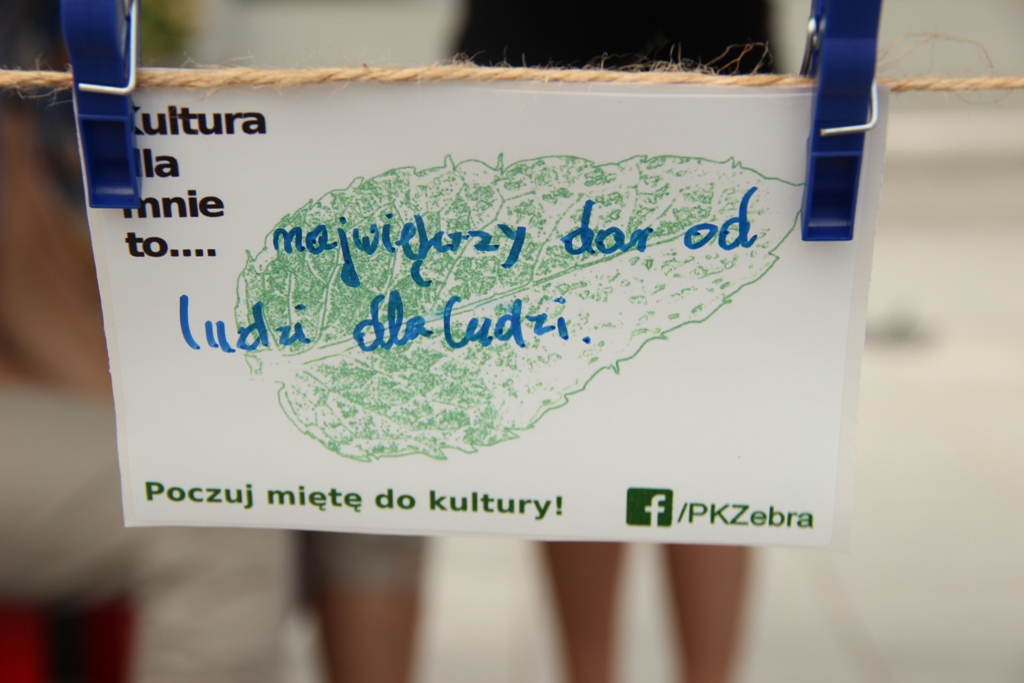 Kultura
dla
mnie
to....
największy dar od
ludzi dla ludzi.
Poczuj miętę do kultury!
f/PKZebra